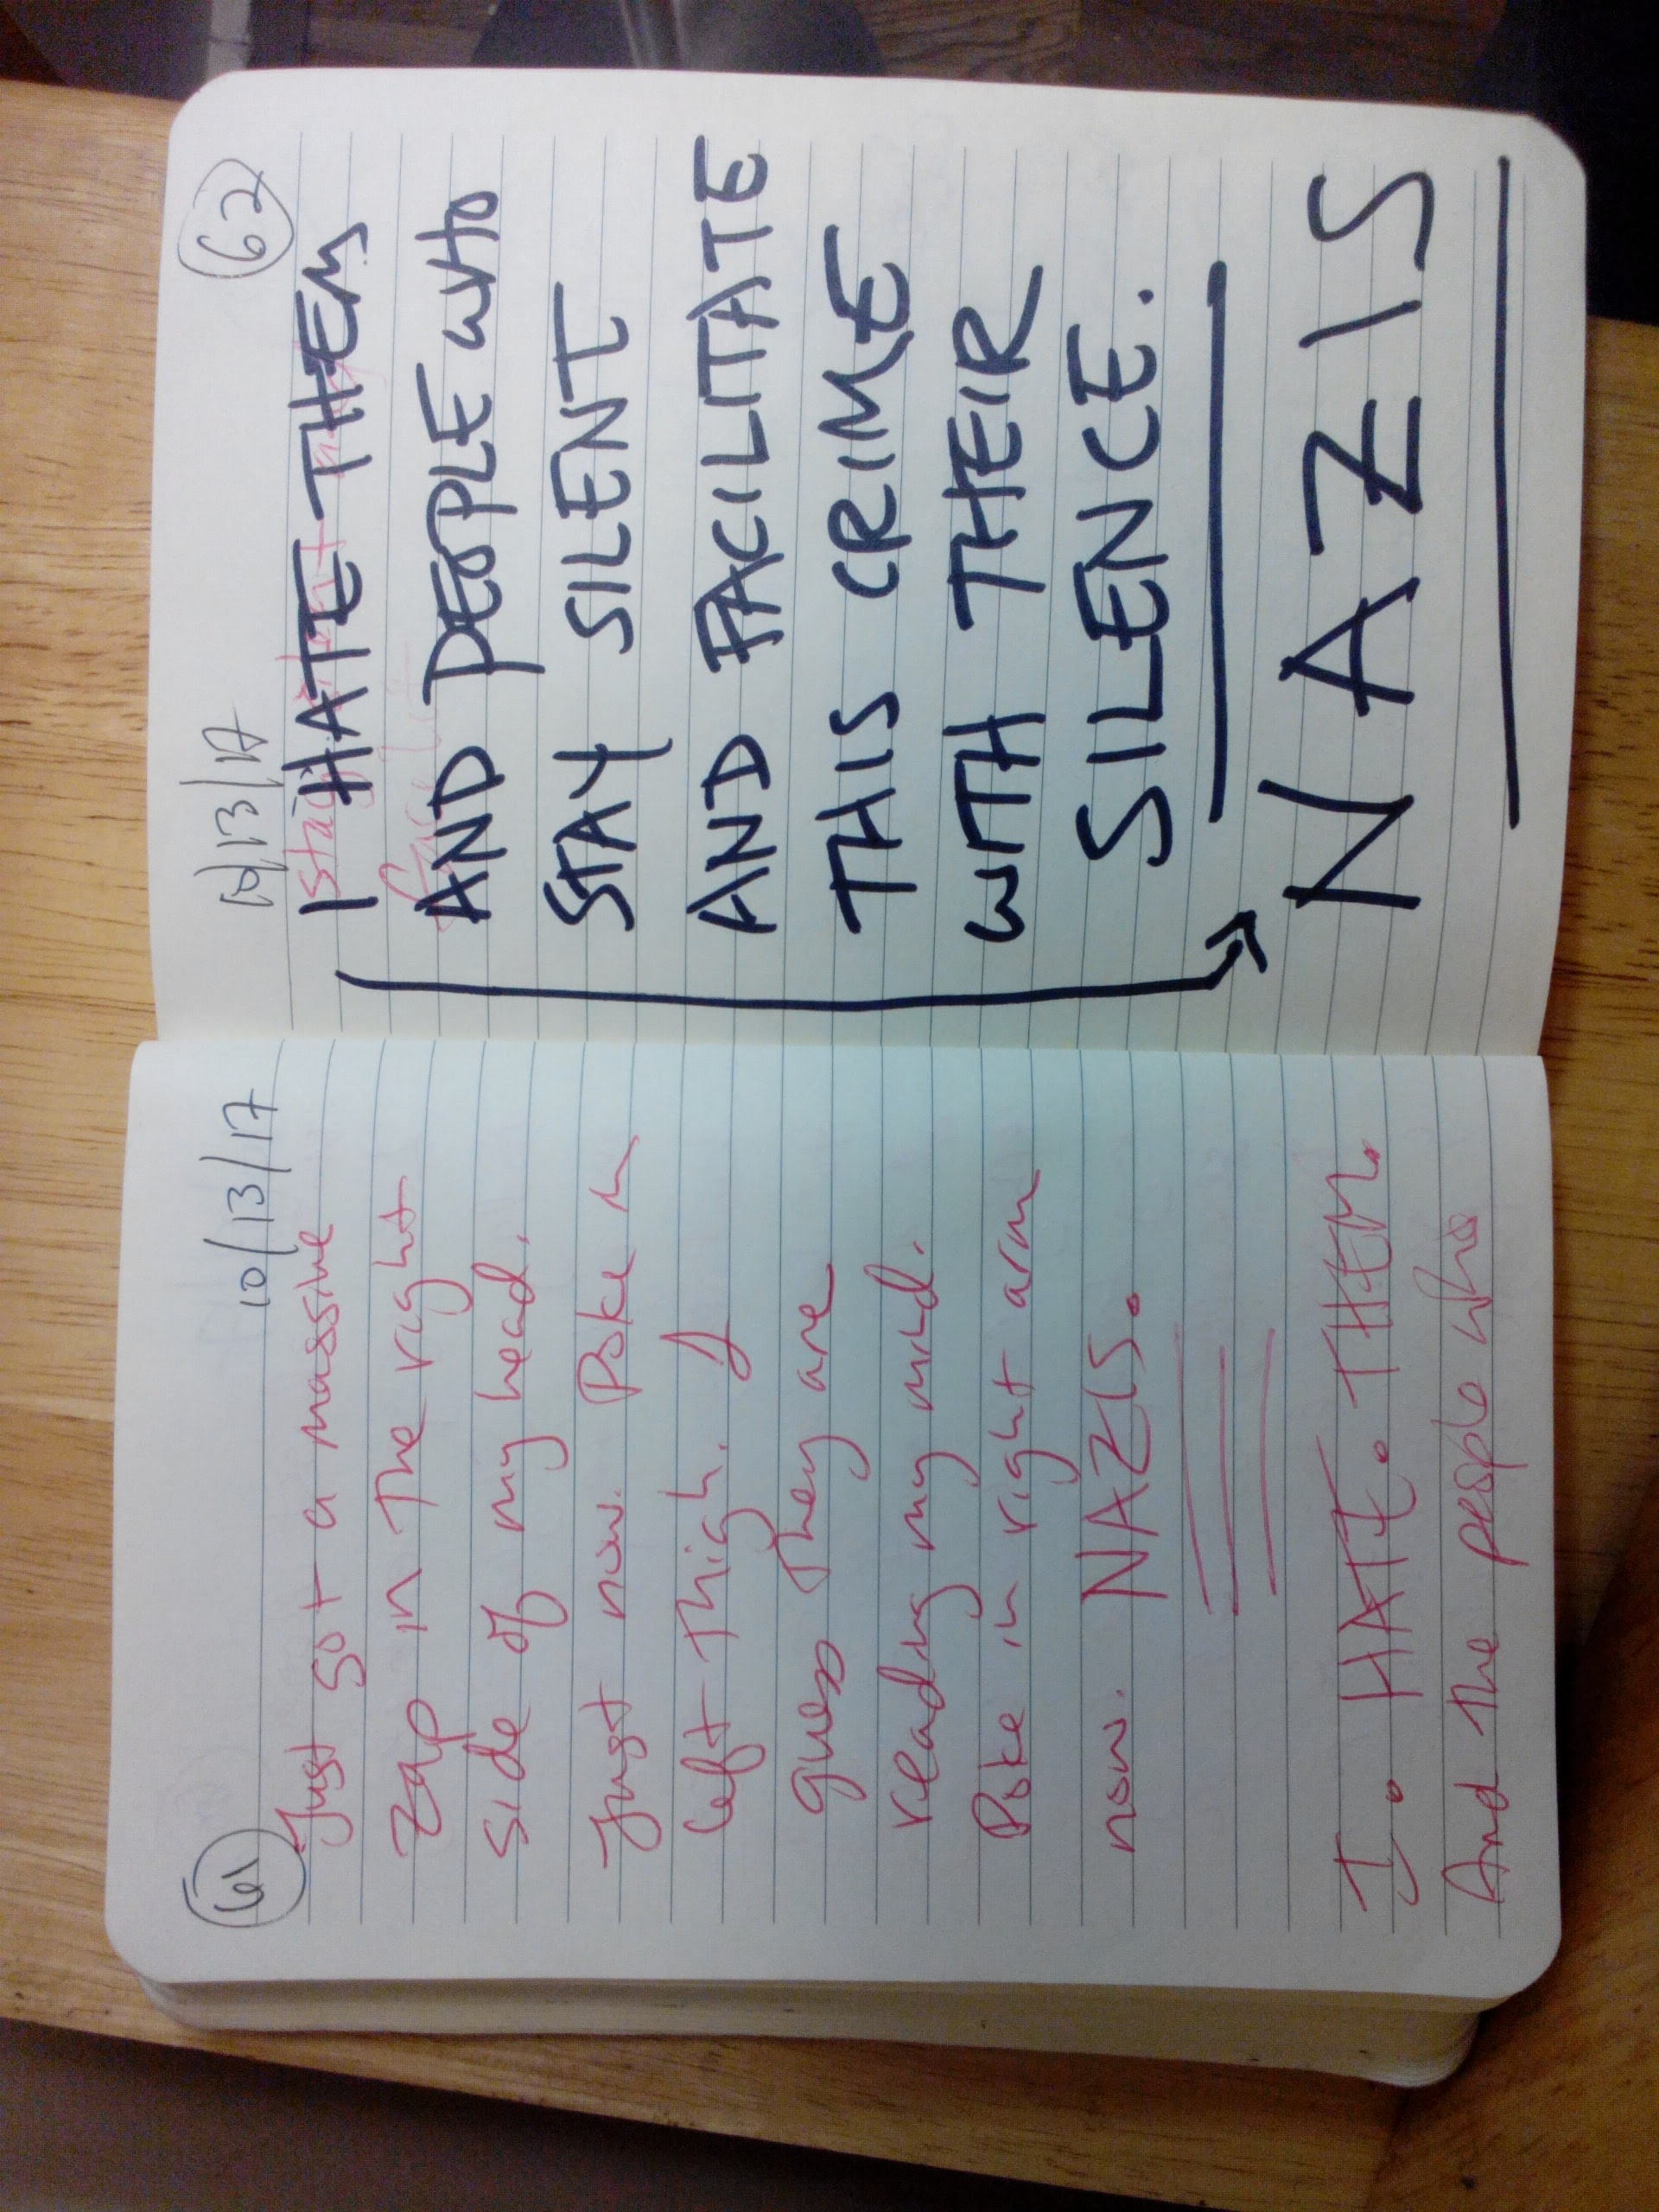 61
10/13/17
Just got a massive
zap in the right
side of my head.
Just now. Poke in
left thigh. I
guess they are
reading my mind.
Poke in right arm
now. NAZIS.
I. HATE. THEM.
And the people who
62
10/13/17
I HATE THEM
AND PEOPLE WHO
STAY SILENT
AND FACILITATE
THIS CRIME
WITH THEIR
SILENCE.
NAZIS